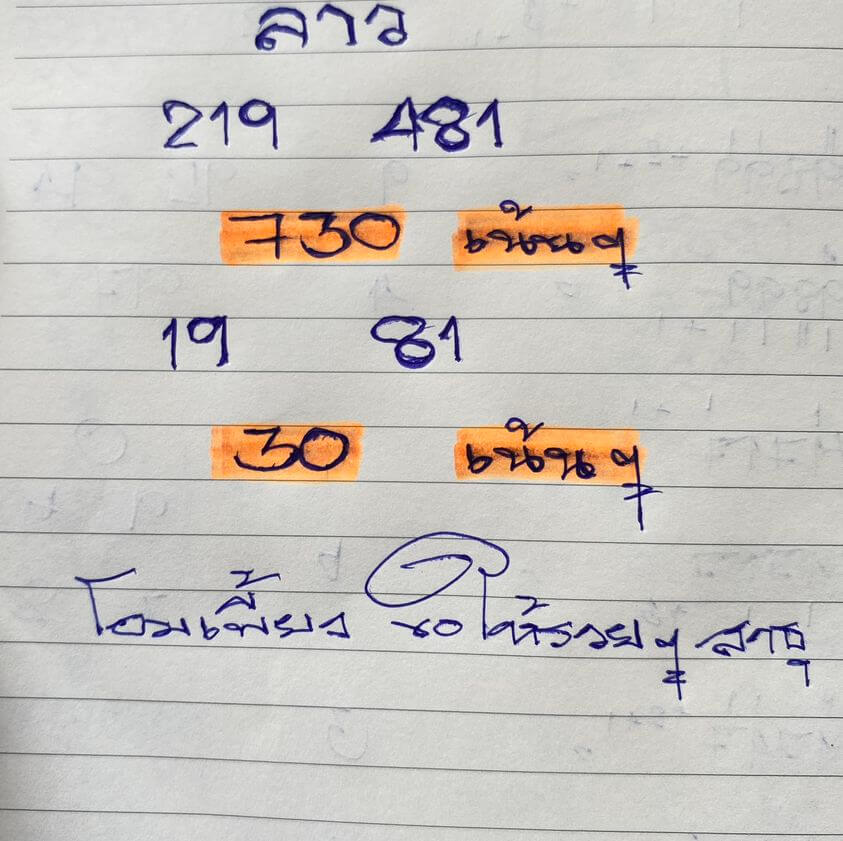 ลาว
219 481
730 เน้นๆ
19 81
30 เน้นๆ
โอมเพี้ยง ขอให้รวยๆ สาธุ